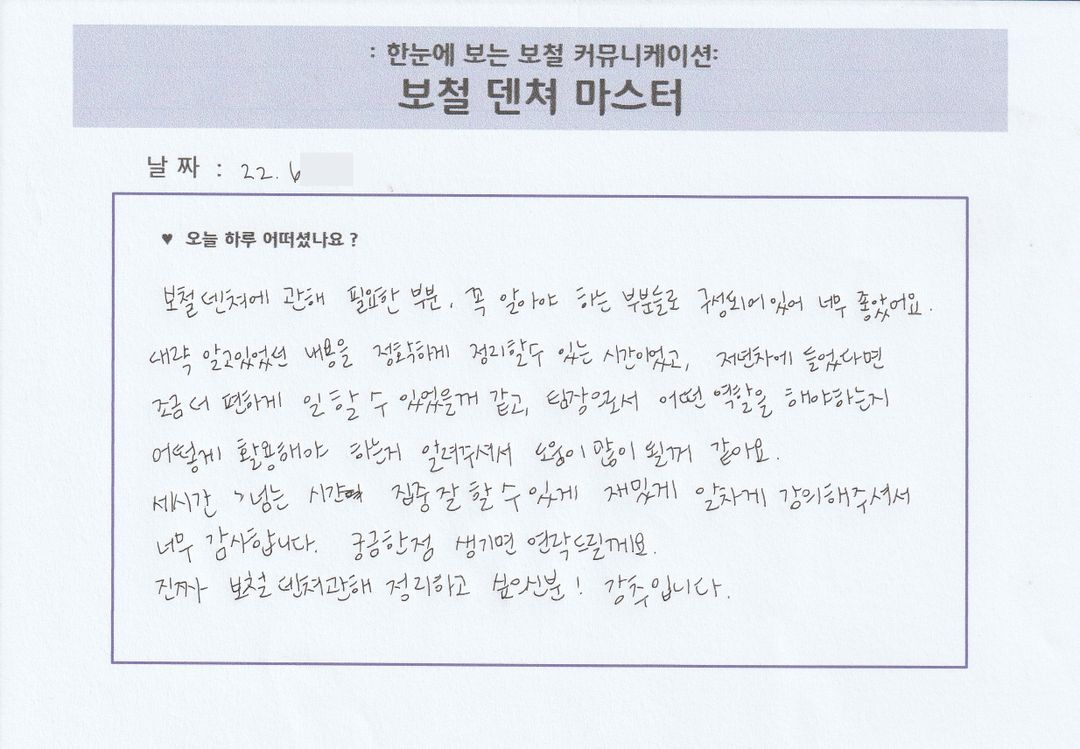 : 한눈에 보는 보철 커뮤니케이션:
보철 덴쳐 마스터
날 짜 : 22. 6
♥ 오늘 하루 어떠셨나요 ?
보철 덴쳐에 관해 필요한 부분, 꼭 알아야 하는 부분들로 구성되어있어 너무 좋았어요.
대략 알고있었던 내용을 정확하게 정리할수 있는 시간이었고, 저년차에 들었다면
조금 더 편하게 일할 수 있었을거 같고, 팀장으로서 어떤 역할을 해야하는지
어떻게 활용해야 하는지 알려주셔서 도움이 많이 될거 같아요.
세시간 넘는 시간 집중 잘 할 수 있게 재밌게 알차게 강의해주셔서
너무 감사합니다. 궁금한점 생기면 연락드릴게요.
진짜 보철 덴쳐관해 정리하고 싶으신분! 강추입니다.